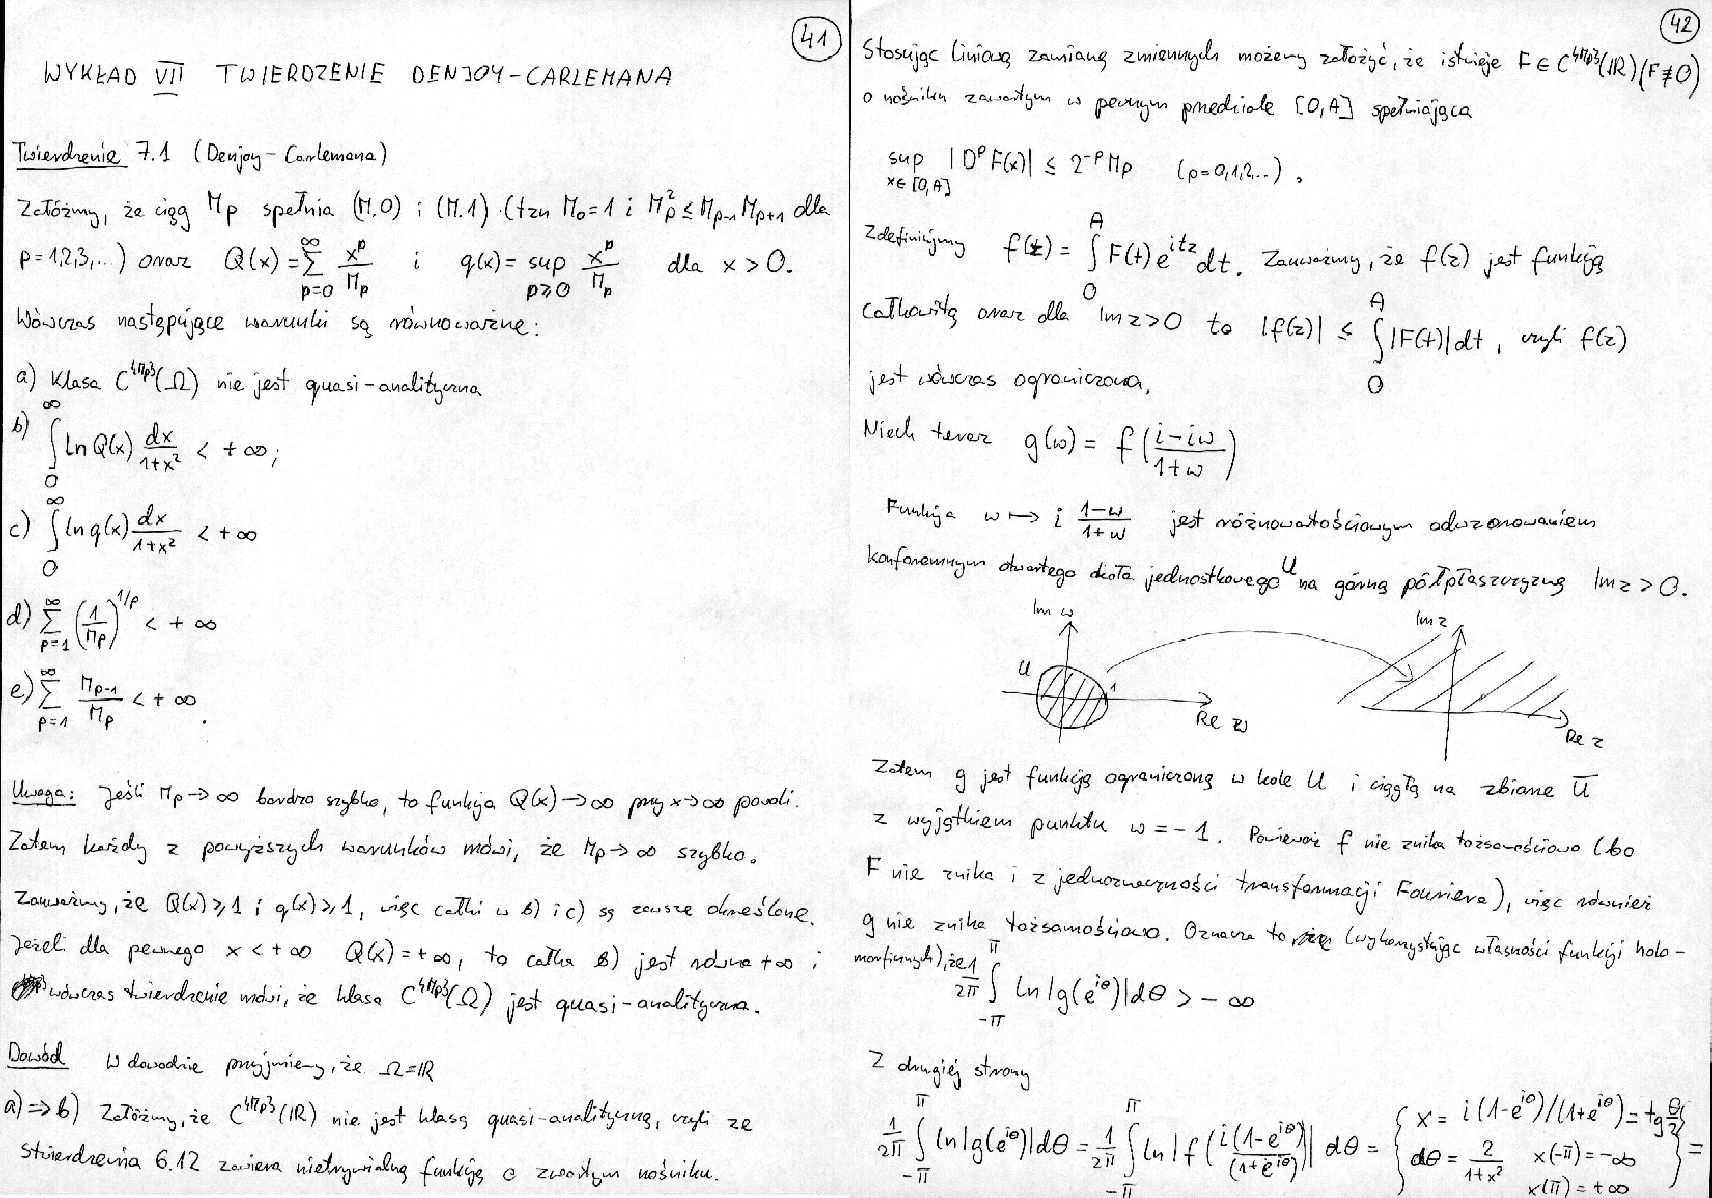 41
WYKŁAD VII TWIERDZENIE DENJOY-CARLEMANA
Twierdzenie 7.1 (Denjoy-Carlemana)
Załóżmy, że ciąg Mp spełnia (M.0) i (M.1) (tzn M₀=1 i Mp² ≤ Mp-1 Mp+1 dla
p=1,2,3,...) oraz Q(x) = ∑_{p=0}^{∞} x^p/Mp i q(x) = sup_{p≥0} x^p/Mp dla x>0.
Wówczas następujące warunki są równoważne:
a) Klasa C^{{Mp}}(Ω) nie jest quasi-analityczna
b) ∫_0^∞ ln Q(x) dx/(1+x²) < +∞;
c) ∫_0^∞ ln q(x) dx/(1+x²) < +∞
d) ∑_{p=1}^{∞} (1/Mp)^{1/p} < +∞
e) ∑_{p=1}^{∞} Mp-1/Mp < +∞.
Uwaga: Jeśli Mp→∞ bardzo szybko, to funkcja Q(x)→∞ przy x→∞ powoli.
Zatem każdy z powyższych warunków mówi, że Mp→∞ szybko.
Zauważmy, że Q(x)≥1 i q(x)≥1, więc całki w b) i c) są zawsze określone.
Jeżeli dla pewnego x<+∞ Q(x)=+∞, to całka b) jest równa +∞ i
wówczas twierdzenie mówi, że klasa C^{{Mp}}(Ω) jest quasi-analityczna.
Dowód W dowodzie przyjmiemy, że Ω=ℝ
a)⇒b) Załóżmy, że C^{{Mp}}(ℝ) nie jest klasą quasi-analityczną, czyli ze
stwierdzenia 6.12 zawiera nietrywialną funkcję o zwartym nośniku.
42
Stosując liniową zamianę zmiennych możemy założyć, że istnieje F∈C^{{Mp}}(ℝ) (F≢0)
o nośniku zawartym w pewnym przedziale [0,A] spełniająca
sup_{x∈[0,A]} |D^p F(x)| ≤ 2^{-p} Mp (p=0,1,2...).
Zdefiniujmy f(z) = ∫_0^A F(t) e^{itz} dt. Zauważmy, że f(z) jest funkcją
całkowitą oraz dla Im z>0 to |f(z)| ≤ ∫_0^A |F(t)|dt, czyli f(z)
jest wówczas ograniczona.
Niech teraz g(w) = f((i-iw)/(1+w))
Funkcja w ↦ i (1-w)/(1+w) jest różnowartościowym odwzorowaniem
konforemnym otwartego koła jednostkowego U na górną półpłaszczyznę Im z>0.
Im w
U
1
Re w
Im z
Re z
Zatem g jest funkcją ograniczoną w kole U i ciągłą na zbiorze Ū
z wyjątkiem punktu w=-1. Ponieważ f nie znika tożsamościowo (bo
F nie znika i z jednoznaczności transformacji Fouriera), więc również
g nie znika tożsamościowo. Oznacza to (wykorzystując własności funkcji holo-
morficznych), że 1/2π ∫_{-π}^{π} ln|g(e^{iθ})|dθ > -∞
Z drugiej strony
1/2π ∫_{-π}^{π} ln|g(e^{iθ})|dθ = 1/2π ∫_{-π}^{π} ln|f(i(1-e^{iθ})/(1+e^{iθ}))| dθ = { x = i(1-e^{iθ})/(1+e^{iθ}) = tg θ/2
dθ = 2/(1+x²) x(-π)=-∞
x(π)=+∞ } =